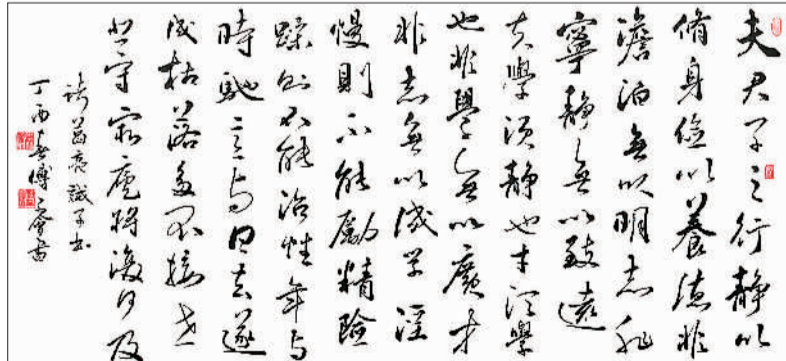 夫君子之行静以
脩身儉以養德非
澹泊無以明志非
寧静無以致遠
夫學須静也才須學
也非學無以廣才
非志無以成學淫
慢則不能勵精險
躁則不能治性年与
時馳意与日去遂
成枯落多不接世
悲守窮廬將復何及
諸葛亮誡子書
丁酉春傅書